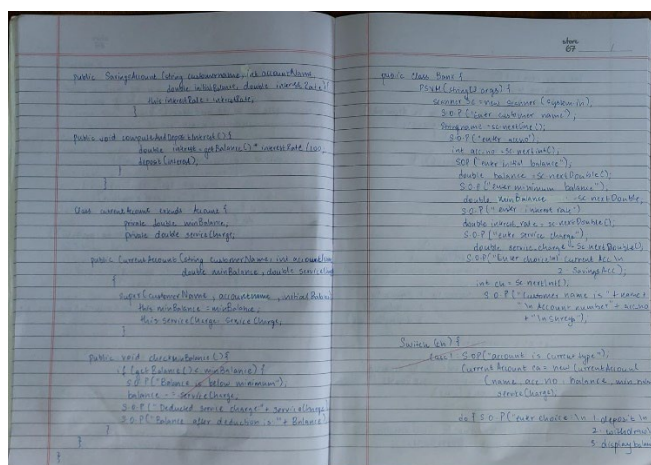 public SavingsAccount (string customername, int accountName,
double initialBalance, double interestRate) {
this.interestRate = interestRate;
}
public void computeAndDepositInterest() {
double interest = getBalance() * interestRate / 100;
deposit(interest);
}
}
Class CurrentAccount extends Account {
private double minBalance;
private double serviceCharge;
public CurrentAccount (string customerName, int account
double minBalance, double service
{
super(customerName, accountname, initialBalance
this.minBalance = minBalance;
this.serviceCharge = serviceCharge;
}
public void checkminBalance() {
if (getBalance() < minBalance) {
S.O.P("Balance is below minimum");
balance -= serviceCharge;
S.O.P("Deducted service charge" + serviceCharge)
S.O.P("Balance after deduction is:" + Balance)
}
}
}
67
public class Bank {
PSVM(string[] args) {
Scanner sc = new Scanner (System.in);
S.O.P("Enter customer name");
String name = sc.nextLine();
S.O.P("enter accno")
int acc.no = sc.nextInt();
SOP("enter initial balance");
double balance = sc.nextDouble();
S.O.P("enter minimum balance");
double minBalance = sc.nextDouble;
S.O.P("enter interest rate")
double interest_rate = sc.nextDouble();
S.O.P("enter service charge");
double service_charge = sc.nextDouble();
S.O.P("Enter choice \n1 current Acc \n
2. Savings Acc);
int ch = sc.nextInt();
S.O.P("Customer name is" + name +
"\n Account number" + acc.no
+
Switch (ch) {
case 1: S.O.P("account is current type");
CurrentAccount ca = new CurrentAccount
(name, acc.no, balance, min
service charge);
do { S.O.P("enter choice \n 1 deposit \n
2. withdraw \
3. displaybalan